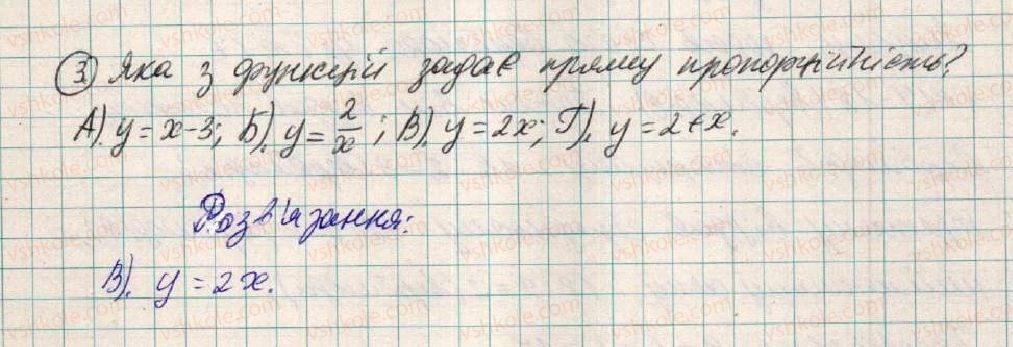 3. Яка з функцій задає пряму пропорційність?
А). y = x - 3; Б). y = 2/x; В). y = 2x; Г). y = 2 + x.
Розв'язання:
В). y = 2x.